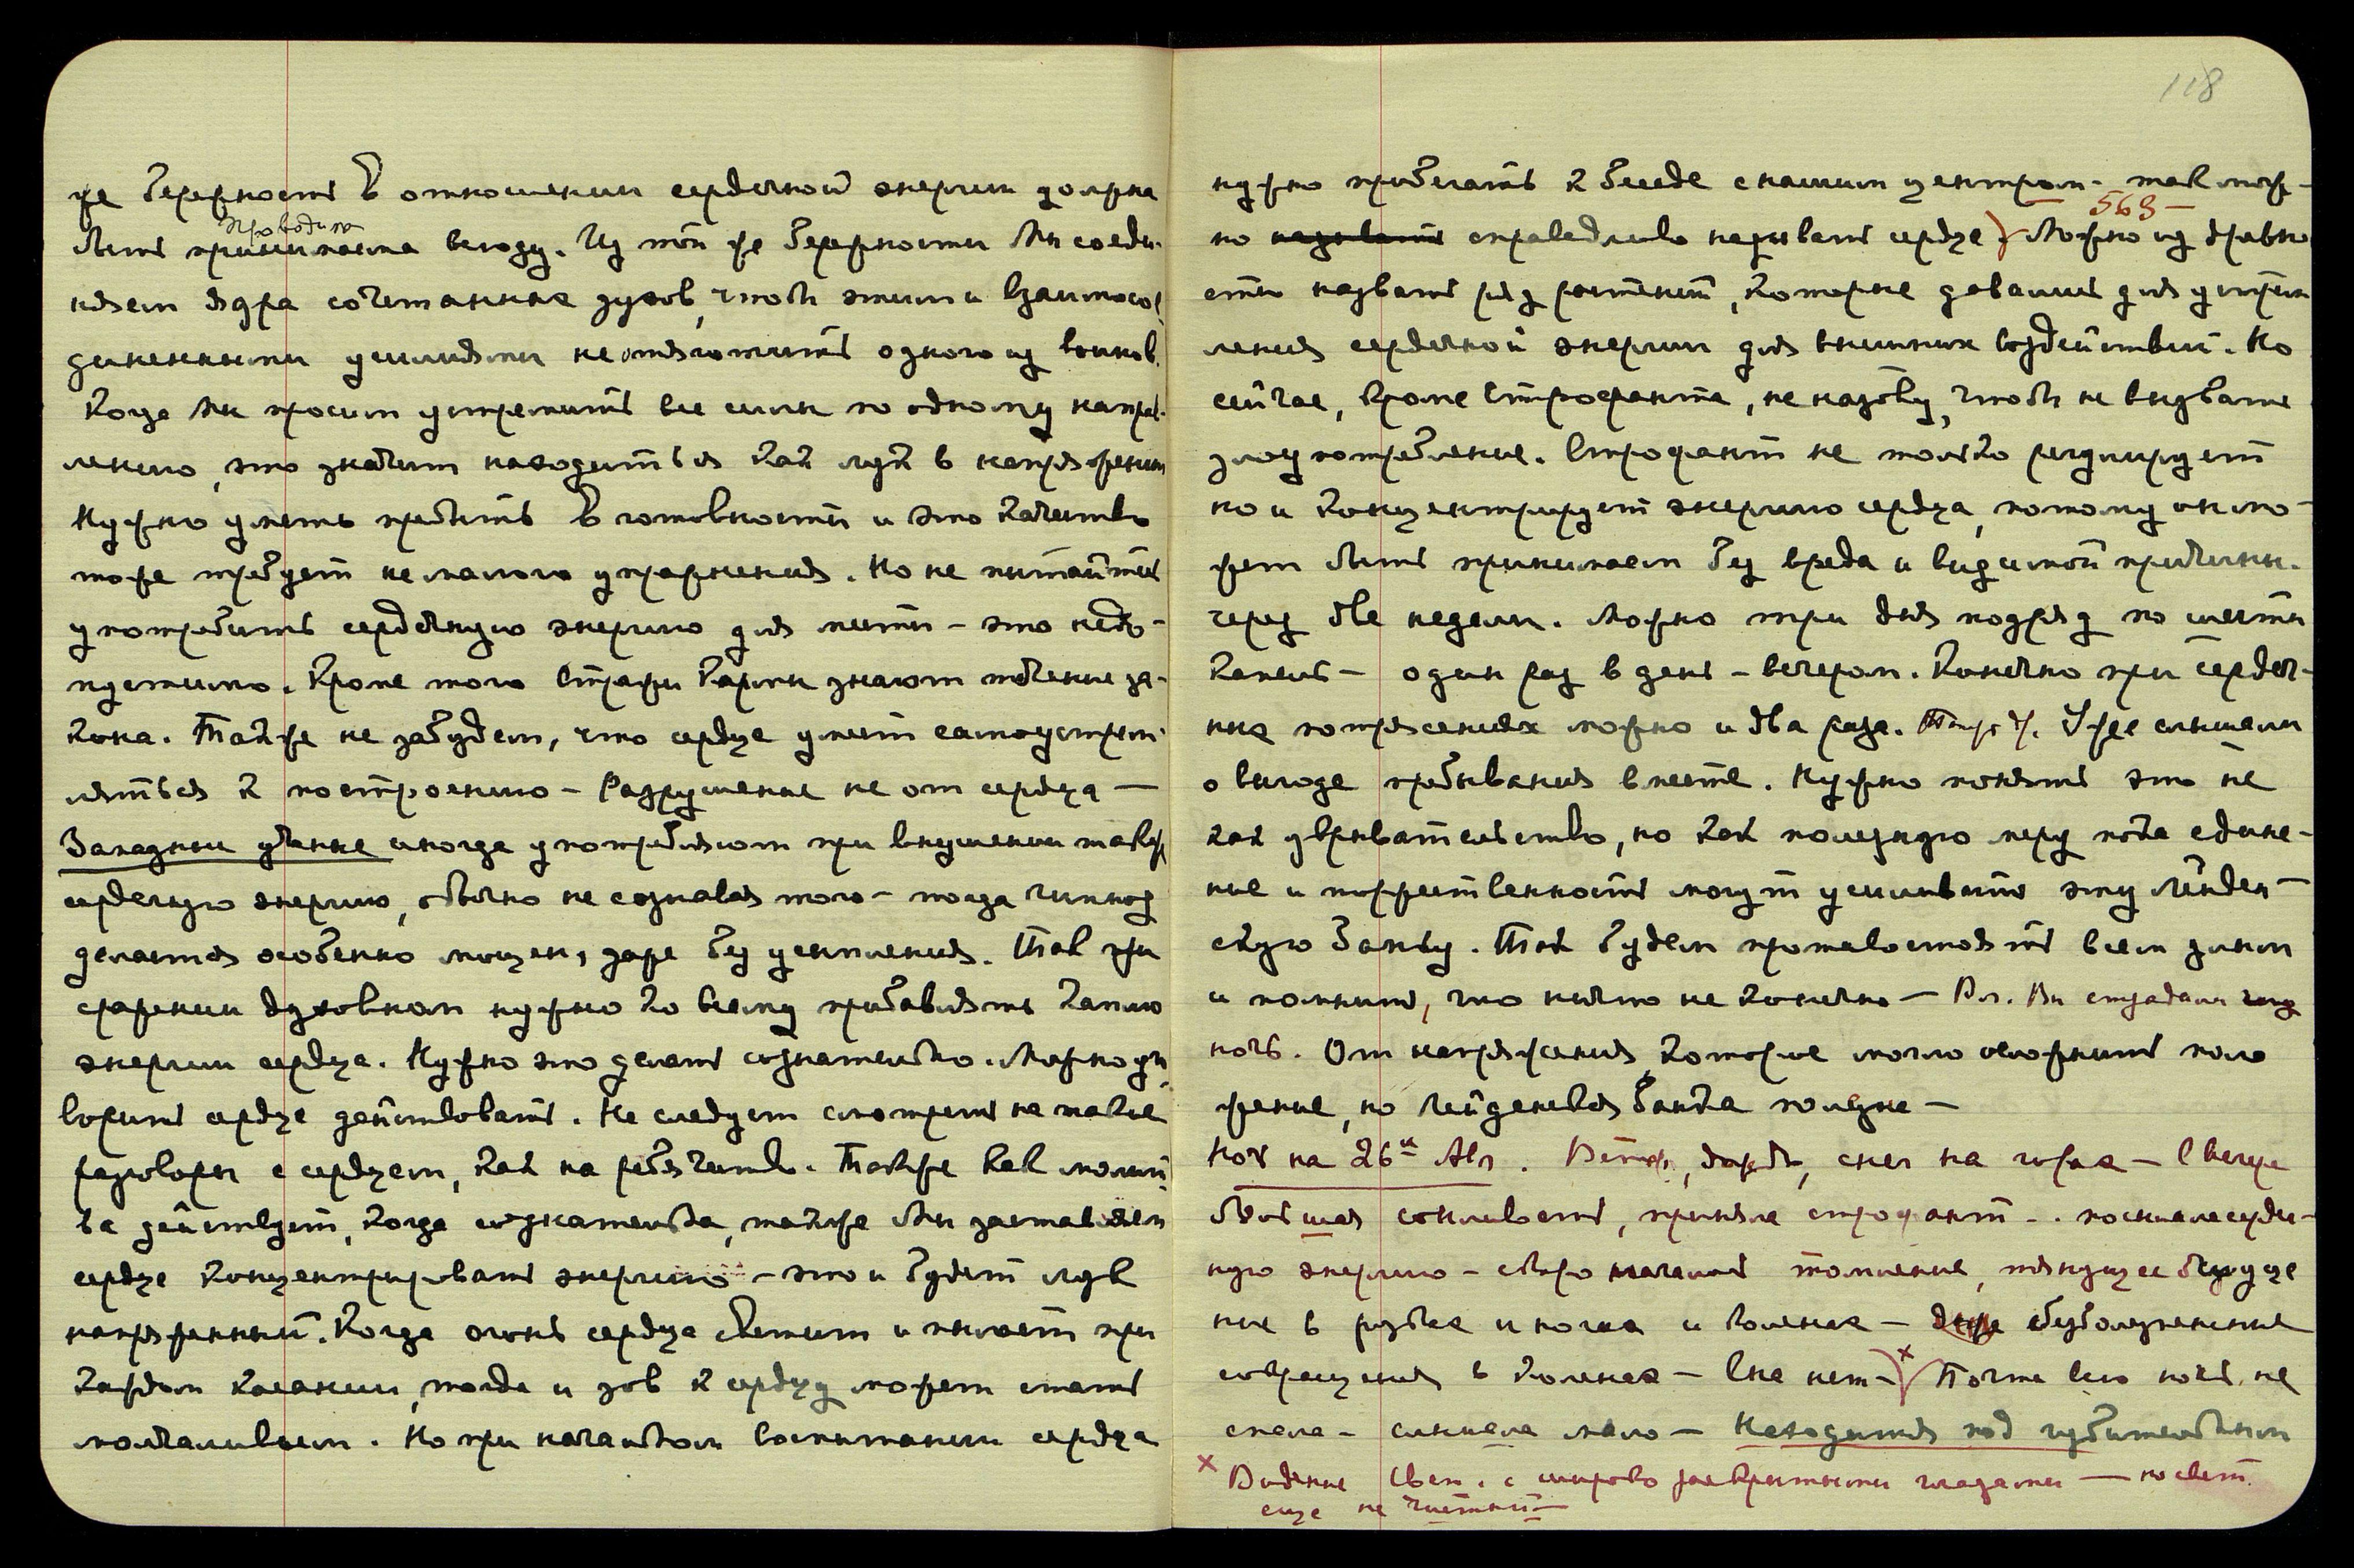 же бережность в отношении сердечной энергии должна
проводима
быть принимаема всюду. Из той же бережности Мы соеди-
няем ядра сочетанных духов, чтобы этими взаимосо-
диненными усилиями не отяготить одного из воинов.
Когда Мы просим устремить все силы по одному направ-
лению, это значит находиться как лук в напряжении
Нужно уметь пребыть в готовности и это качество
тоже требует немалого упражнения. Но не пытайтесь
употребить сердечную энергию для мести – это недо-
пустимо. Кроме того Стражи Кармы знают течение за-
кона. Также не забудем, что сердце умеет самоустрем-
ляться к построению – Разрушение не от сердца —
Западные ученые иногда употребляют при внушении также
сердечную энергию, обычно не сознавая того – тогда гипноз
делается особенно мощен, даже без усыпления. Так при
сражении духовном нужно ко всему прибавлять каплю
энергии сердца. Нужно это делать сознательно. Можно уго-
ворить сердце действовать. Не следует смотреть на такие
разговоры с сердцем, как на ребячество. Также как молит-
ва действует, когда сознательна, также Мы заставляем
сердце концентрировать энергию – это и будет лук
напряженный. Когда огонь сердца светит и пылает при
каждом касании, тогда и зов к сердцу может стать
молчаливым. Но при начальном воспитании сердца
118
нужно прибегать к беседе с нашим центром – так мож-
569 –
но называть справедливо называть сердце) Можно из древно
сти назвать ряд растений, которые давались для устрем
ления сердечной энергии для внешних воздействий. Но
сейчас, кроме Строфанта, не назову, чтобы не вызвать
злоупотребление. Строфант не только регулирует
но и концентрирует энергию сердца, потому он мо-
жет быть принимаем без вреда и видимой причины.
через две недели. Можно три дня подряд по шести
капель – один раз в день – вечером. Конечно при сердеч-
ных потрясениях можно и два раза. Уже слышали
о выгоде пребывания вместе. Нужно понять это не
как убрывательство, но как полезную меру пока едине-
ние и торжественность могут усиливать эту Лейден-
скую Банку. Так будем противостоять всем злым
и помнить, что ничто не конечно – Вл. Вы страдали
ночь. От напряжения, которые могло осложнить поло
жение, но Лейденская банка полезна —
Ночь на 26-ое Авг. Ветер, дождь, снег на горах – Ввечеру
большая сонливость, приняла строфант – . посылала сердеч-
ную энергию – скоро началось томление, тянущее ощуще
ние в руках и ногах и коленах – даже безболезненные
сокращения в коленах – Сна нет – × Почти всю ночь не
спала – слышала мало – Находишься под губительным
× Видение Свет. с широко закрытыми глазами — но свет
еще не чистый —